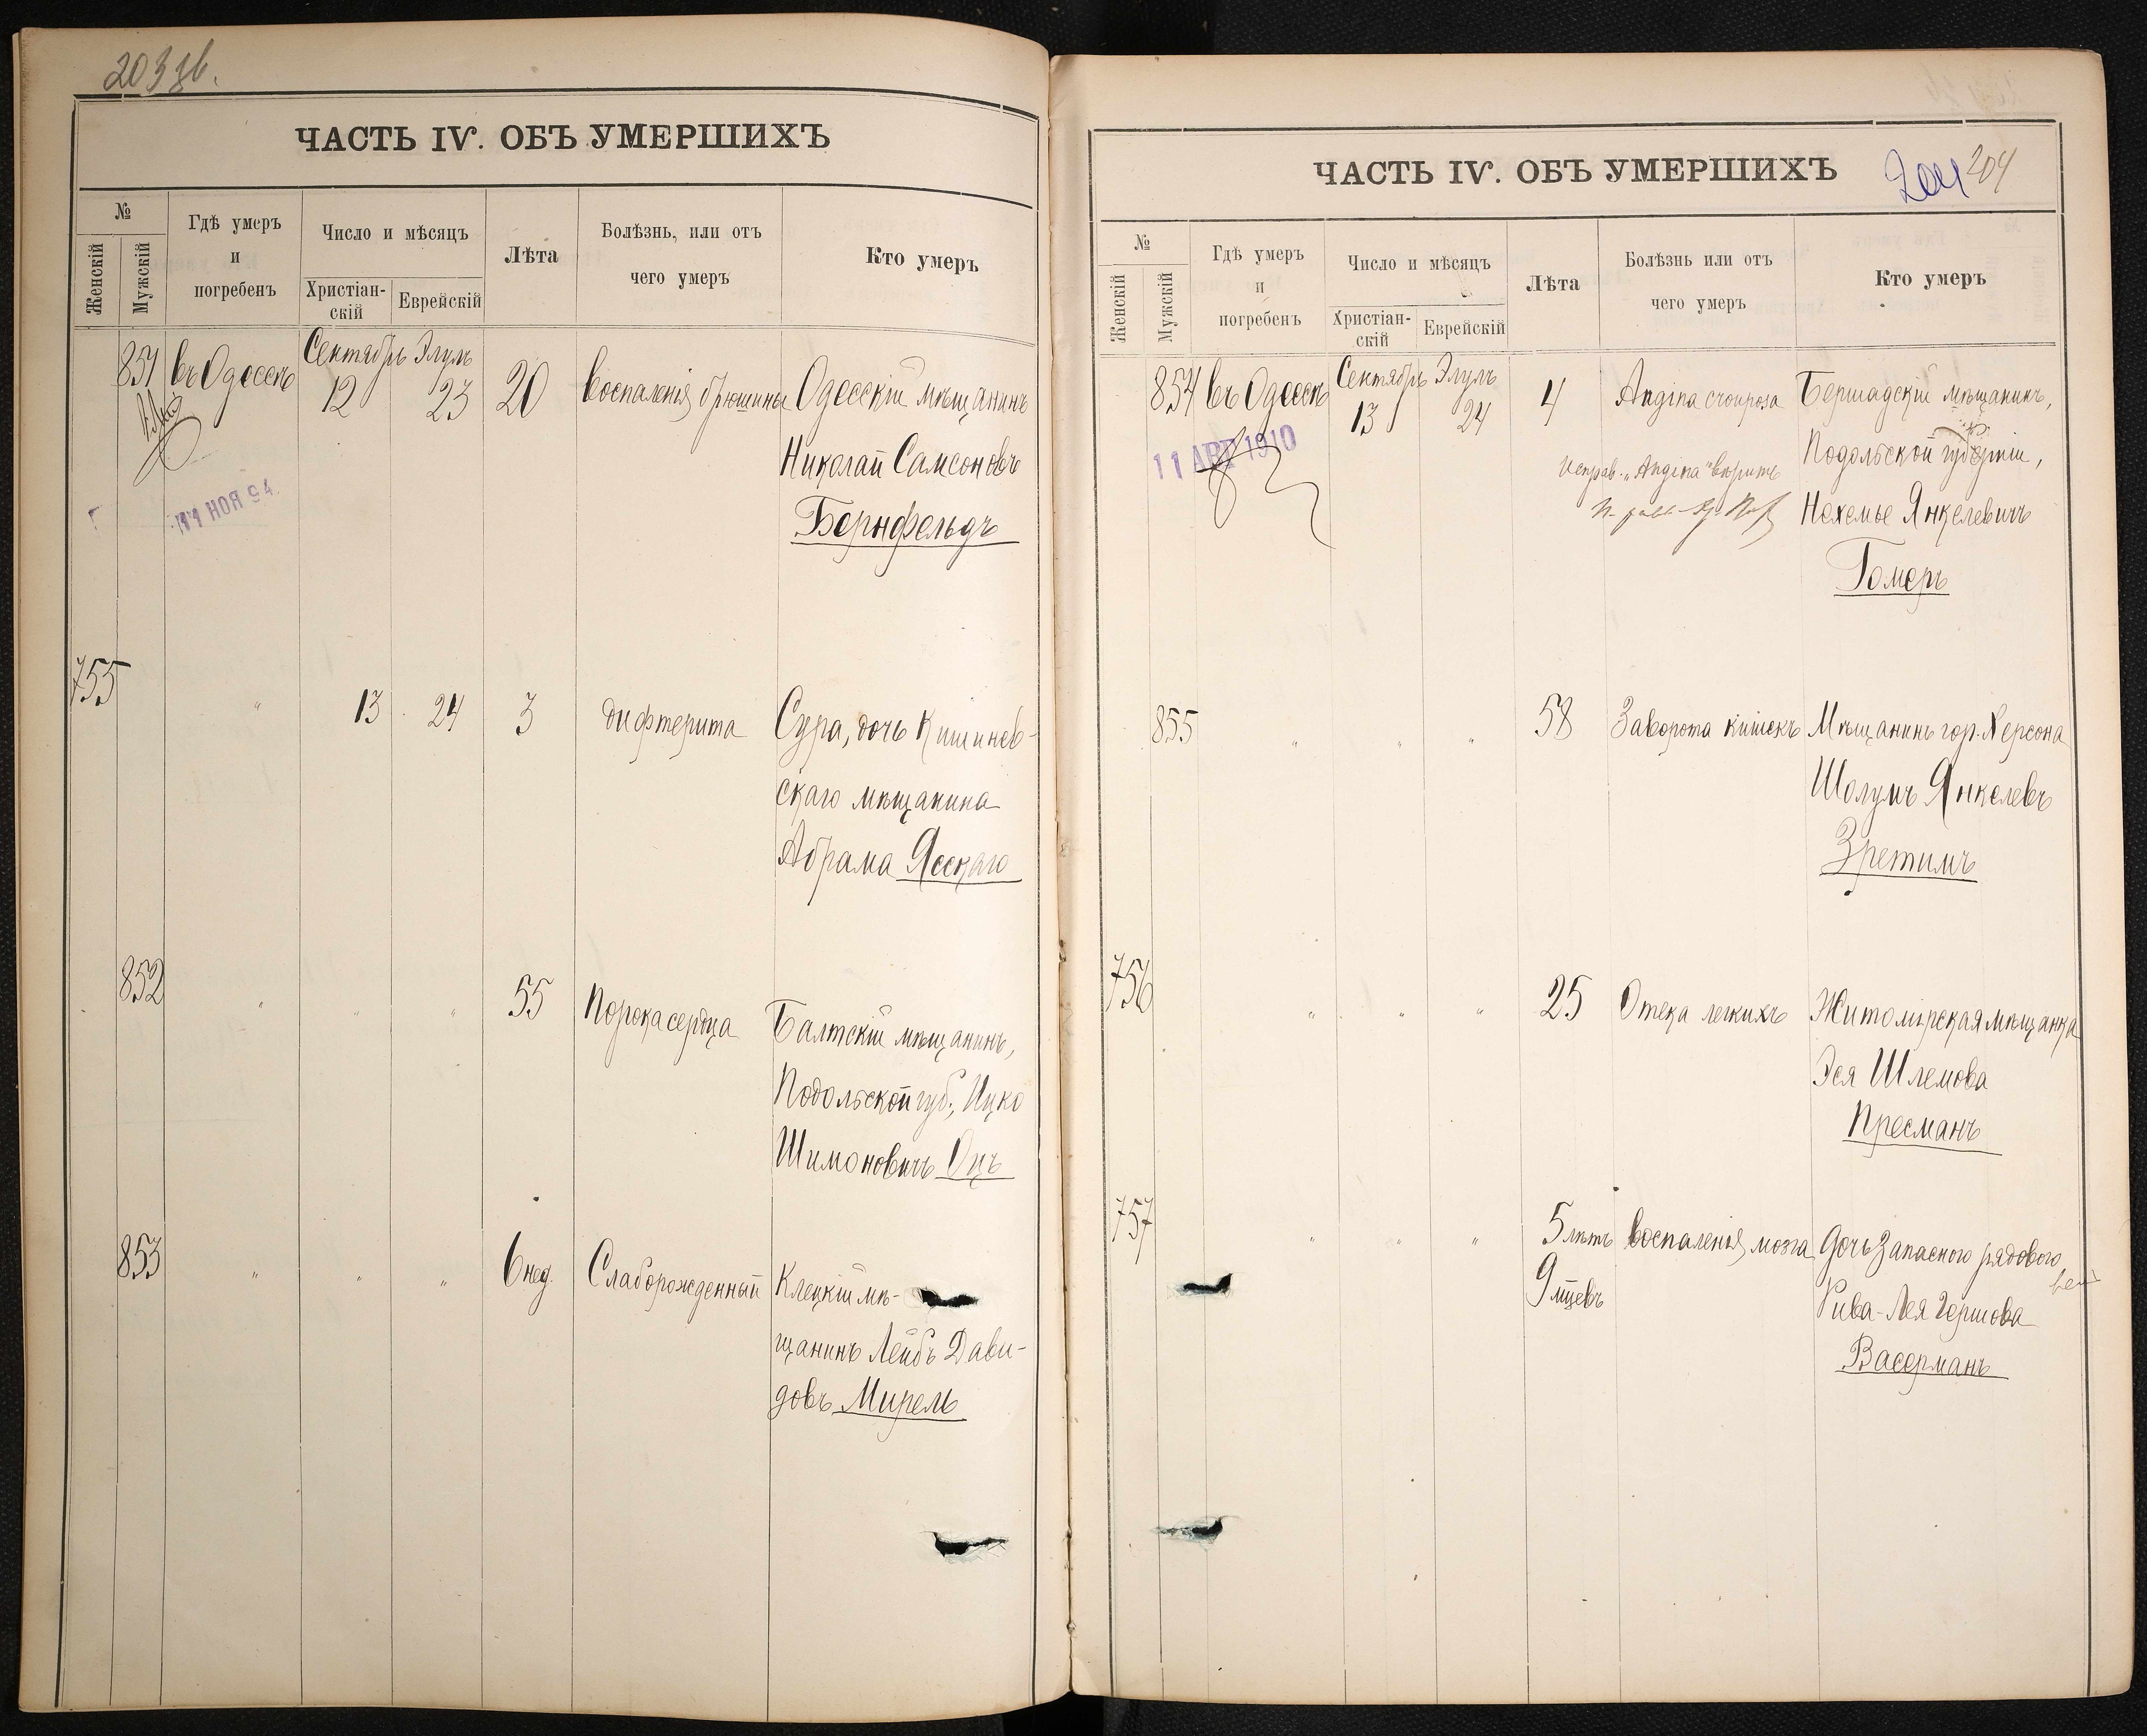 203 зв.
ЧАСТЬ IV. ОБЪ УМЕРШИХЪ
№
Женскій
Мужскій
Гдѣ умеръ
и
погребенъ
Число и мѣсяцъ
Христіан-
скій
Еврейскій
Лѣта
Болѣзнь, или отъ
чего умеръ
Кто умеръ
851 въ Одессѣ Сентябрь 12 Элулъ 23 20 воспаленія брюшины Одесскій мѣщанинъ
Николай Самсоновъ
Бернфельдъ
11 НОЯ 94
755 " 13 24 3 дифтерита Сура, дочь Кишинев-
скаго мѣщанина
Абрама Ясскаго
852 " " " 55 Порока сердца Балтскій мѣщанинъ,
Подольской губ., Ицко
Шимоновичъ Оцъ
853 " " " 6 нед. Слаборожденный Клецкій мѣ-
щанинъ Лейбъ Дави-
довъ Мирель
204 204
ЧАСТЬ IV. ОБЪ УМЕРШИХЪ
№
Женскій
Мужскій
Гдѣ умеръ
и
погребенъ
Число и мѣсяцъ
Христіан-
скій
Еврейскій
Лѣта
Болѣзнь или отъ
чего умеръ
Кто умеръ
854 въ Одессѣ Сентябрь 13 Элулъ 24 4 Angina crouposa Бершадскій мѣщанинъ,
Подольской губерніи,
Нехемье Янкелевичъ
Гомеръ
11 АВГ 1910
исправ. „Angina" вѣрить
855 " " " 58 Заворота кишекъ Мѣщанинъ гор. Херсона
Шолумъ Янкелевъ
Зретимъ
756 " " " 25 Отека легкихъ Житомірская мѣщанка
Эся Шлемова
Пресманъ
757 " " " 5 лѣтъ 9 мцевъ воспаленія мозга Дочь запасного рядового
Рива-Лея Гершова
Васерманъ